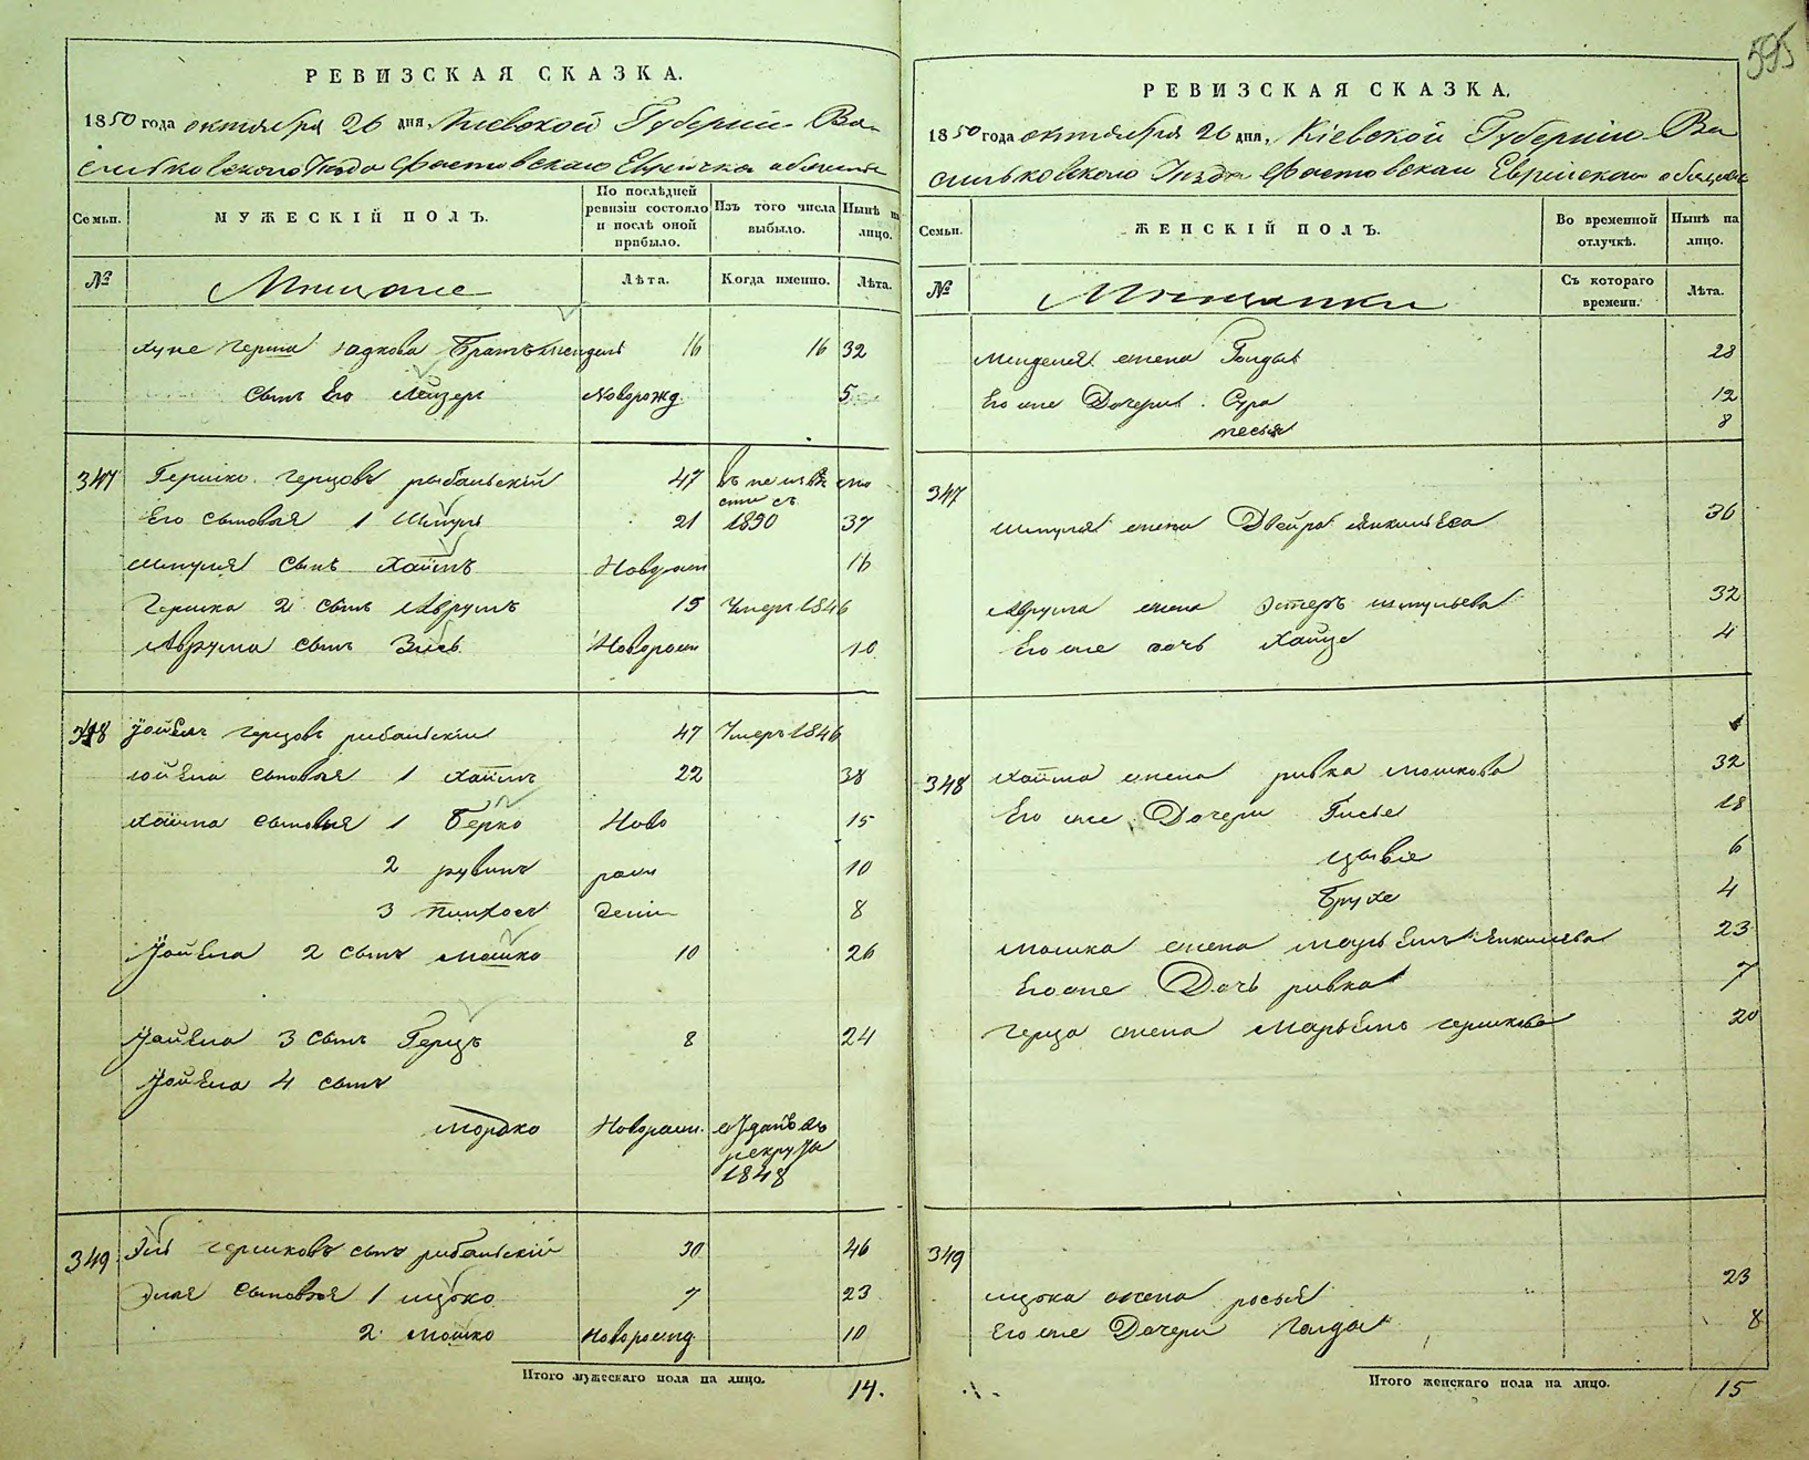 595
РЕВИЗСКАЯ СКАЗКА.
1850 года октября 26 дня Киевской Губернии Ва-
сильковского Уезда Фастовскаго Еврейска общества
Семьи. МУЖЕСКІЙ ПОЛЪ. По послѣдней ревизіи состояло и послѣ оной прибыло. Изъ того числа выбыло. Нынѣ на лицо.
№ Мещане Лѣта. Когда именно. Лѣта.
Герша Братъ Мендель 16 16 32
сынъ Его Лейзеръ Новорожд 5
347 Гершко Герцовъ рыбальскій 47 въ неизвѣстно
сти съ
Его сыновья 1 Шмуль 21 1850 37
Шмуля сынъ Хаимъ Новорож 16
Гершка 2 сынъ Аврумъ 15 Умеръ 1846
Аврума сынъ Зись Новорож 10
348 Іойель Герцовъ рибальскій 47 Умеръ 1846
Іойеля сыновья 1 Хаимъ 22 38
Хаима сыновья 1 Берко Ново 15
2 рувинъ рож 10
3 Пинхосъ дении 8
Іойеля 2 сынъ Мошко 10 26
Іойеля 3 сынъ Герцъ 8 24
Іойеля 4 сынъ
Мордко Новорож. отданъ въ
рекруты
1848
349 Эль Гершковъ сынъ рибальскій 30 46
Эля сыновья 1 Ицко 7 23
2 Мошко Новорожд 10
Итого мужескаго пола на лицо. 14.
РЕВИЗСКАЯ СКАЗКА.
1850 года октября 26 дня, Кіевской Губерніи Ва
сильковского Уезда Фастовскаго Еврейскаго общества
Семьи. ЖЕНСКІЙ ПОЛЪ. Во временной отлучкѣ. Нынѣ на лицо.
№ Мещанки Съ котораго времени. Лѣта.
Менделя жена Голда 28
Его же Дочери Сура 12
песья 8
347
Шмуля жена Двейра Янкильева 36
Аврума жена Эстеръ Шмульева 32
Его же дочь Хайце 4
348 Хаима жена ривка Мошкова 32
Его же Дочери Гисье 18
цывіе 6
Брухе 4
Мошка жена Марьемъ Янкилева 23
Его же Дочь ривка 7
Герца жена Марьемъ Гершкова 20
349
Ицка жена росья 23
Его же Дочери Голда 8
Итого женскаго пола на лицо. 15